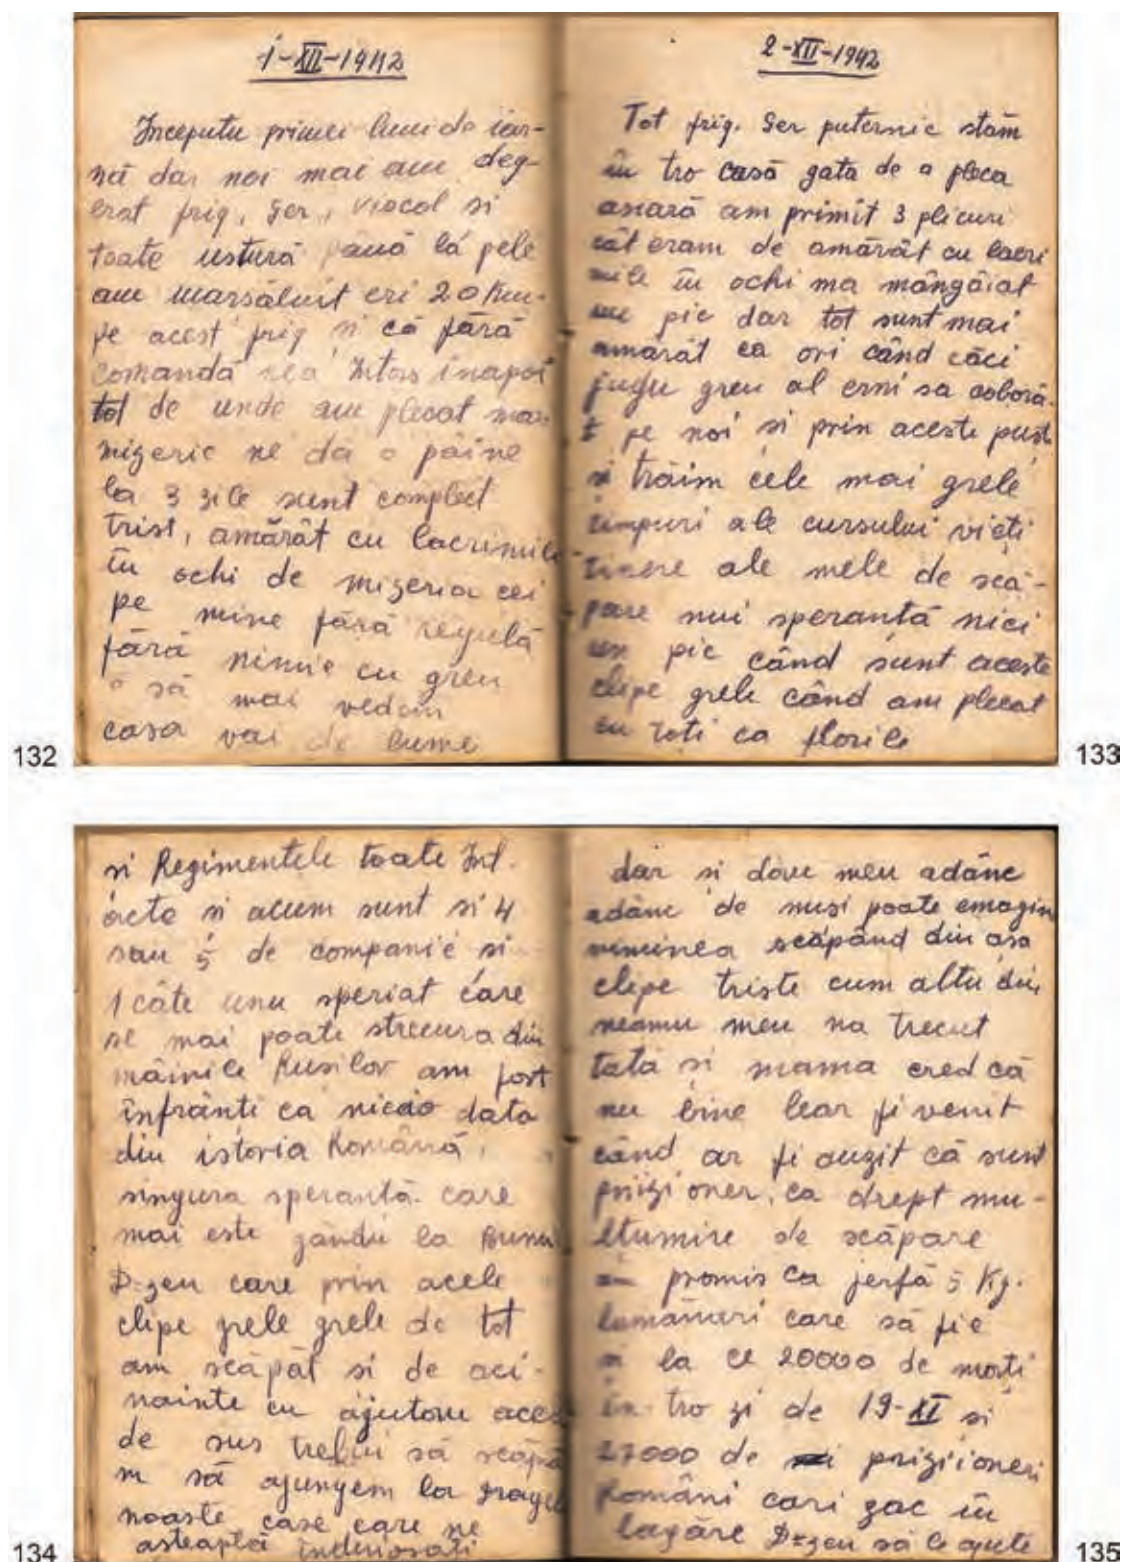 1-XII-1942
Inceputu primei luni de iar-
nă dar noi mai am deg-
erat frig, ger, viscol si
toate ustură până lá pele
am marsăluit eri 20 km.
pe acest frig si că fără
comandă nea Intors inapoi
tot de unde am plecat mare
mizerie ne da o pâine
la 3 zile sunt complect
trist, amărât cu lacrimile
în ochi de mizeria cei
pe mine fără regulă
fără nimic cu greu
o să mai vedem
casa vai de lume
132
2-XII-1942
Tot frig. Ger puternic stăm
în tro casă gata de a pleca
aseară am primit 3 plicuri
cât eram de amărât cu lacri
mile în ochi ma mângâiat
un pic dar tot sunt mai
amărât ca ori când căci
jugu greu al erni sa coborâ-
t pe noi si prin aceste pusti
si trăim cele mai grele
timpuri ale cursului vieti
tinere ale mele de scă-
pare nui sperantă nici
un pic când sunt aceste
clipe grele când am plecat
cu toti ca florile
133
si Regimentele toate Int.
acte si acum sunt si 4
sau 5 de companie si
1 câte unu speriat care
se mai poate strecura din
mâinile Rusilor am fost
înfrânti ca nicio data
din istoria Română,
singura sperantă care
mai este gându la Bunu
D-zeu care prin acele
clipe grele grele de tot
am scăpăt si de aci-
nainte cu ajutoru acel
de sus trebui să scăpă
m să ajungem la dragele
noaste case care ne
asteaptă induiosati
134
dar si doru meu adânc
adânc de nusi poate emagin
nimenea scăpând din asa
clipe triste cum altu din
neamu meu na trecut
tata si mama cred că
nu bine lear fi venit
când ar fi auzit că sunt
prizi oner, ca drept mu-
ltumire de scăpare
am promis ca jerfă 5 Kg.
lumânari care să fie
si la ce 20000 de morti
în tro zi de 19-XI si
27000 de prizi ioneri
Români cari zac în
lagăre D-zeu să le ajute
135